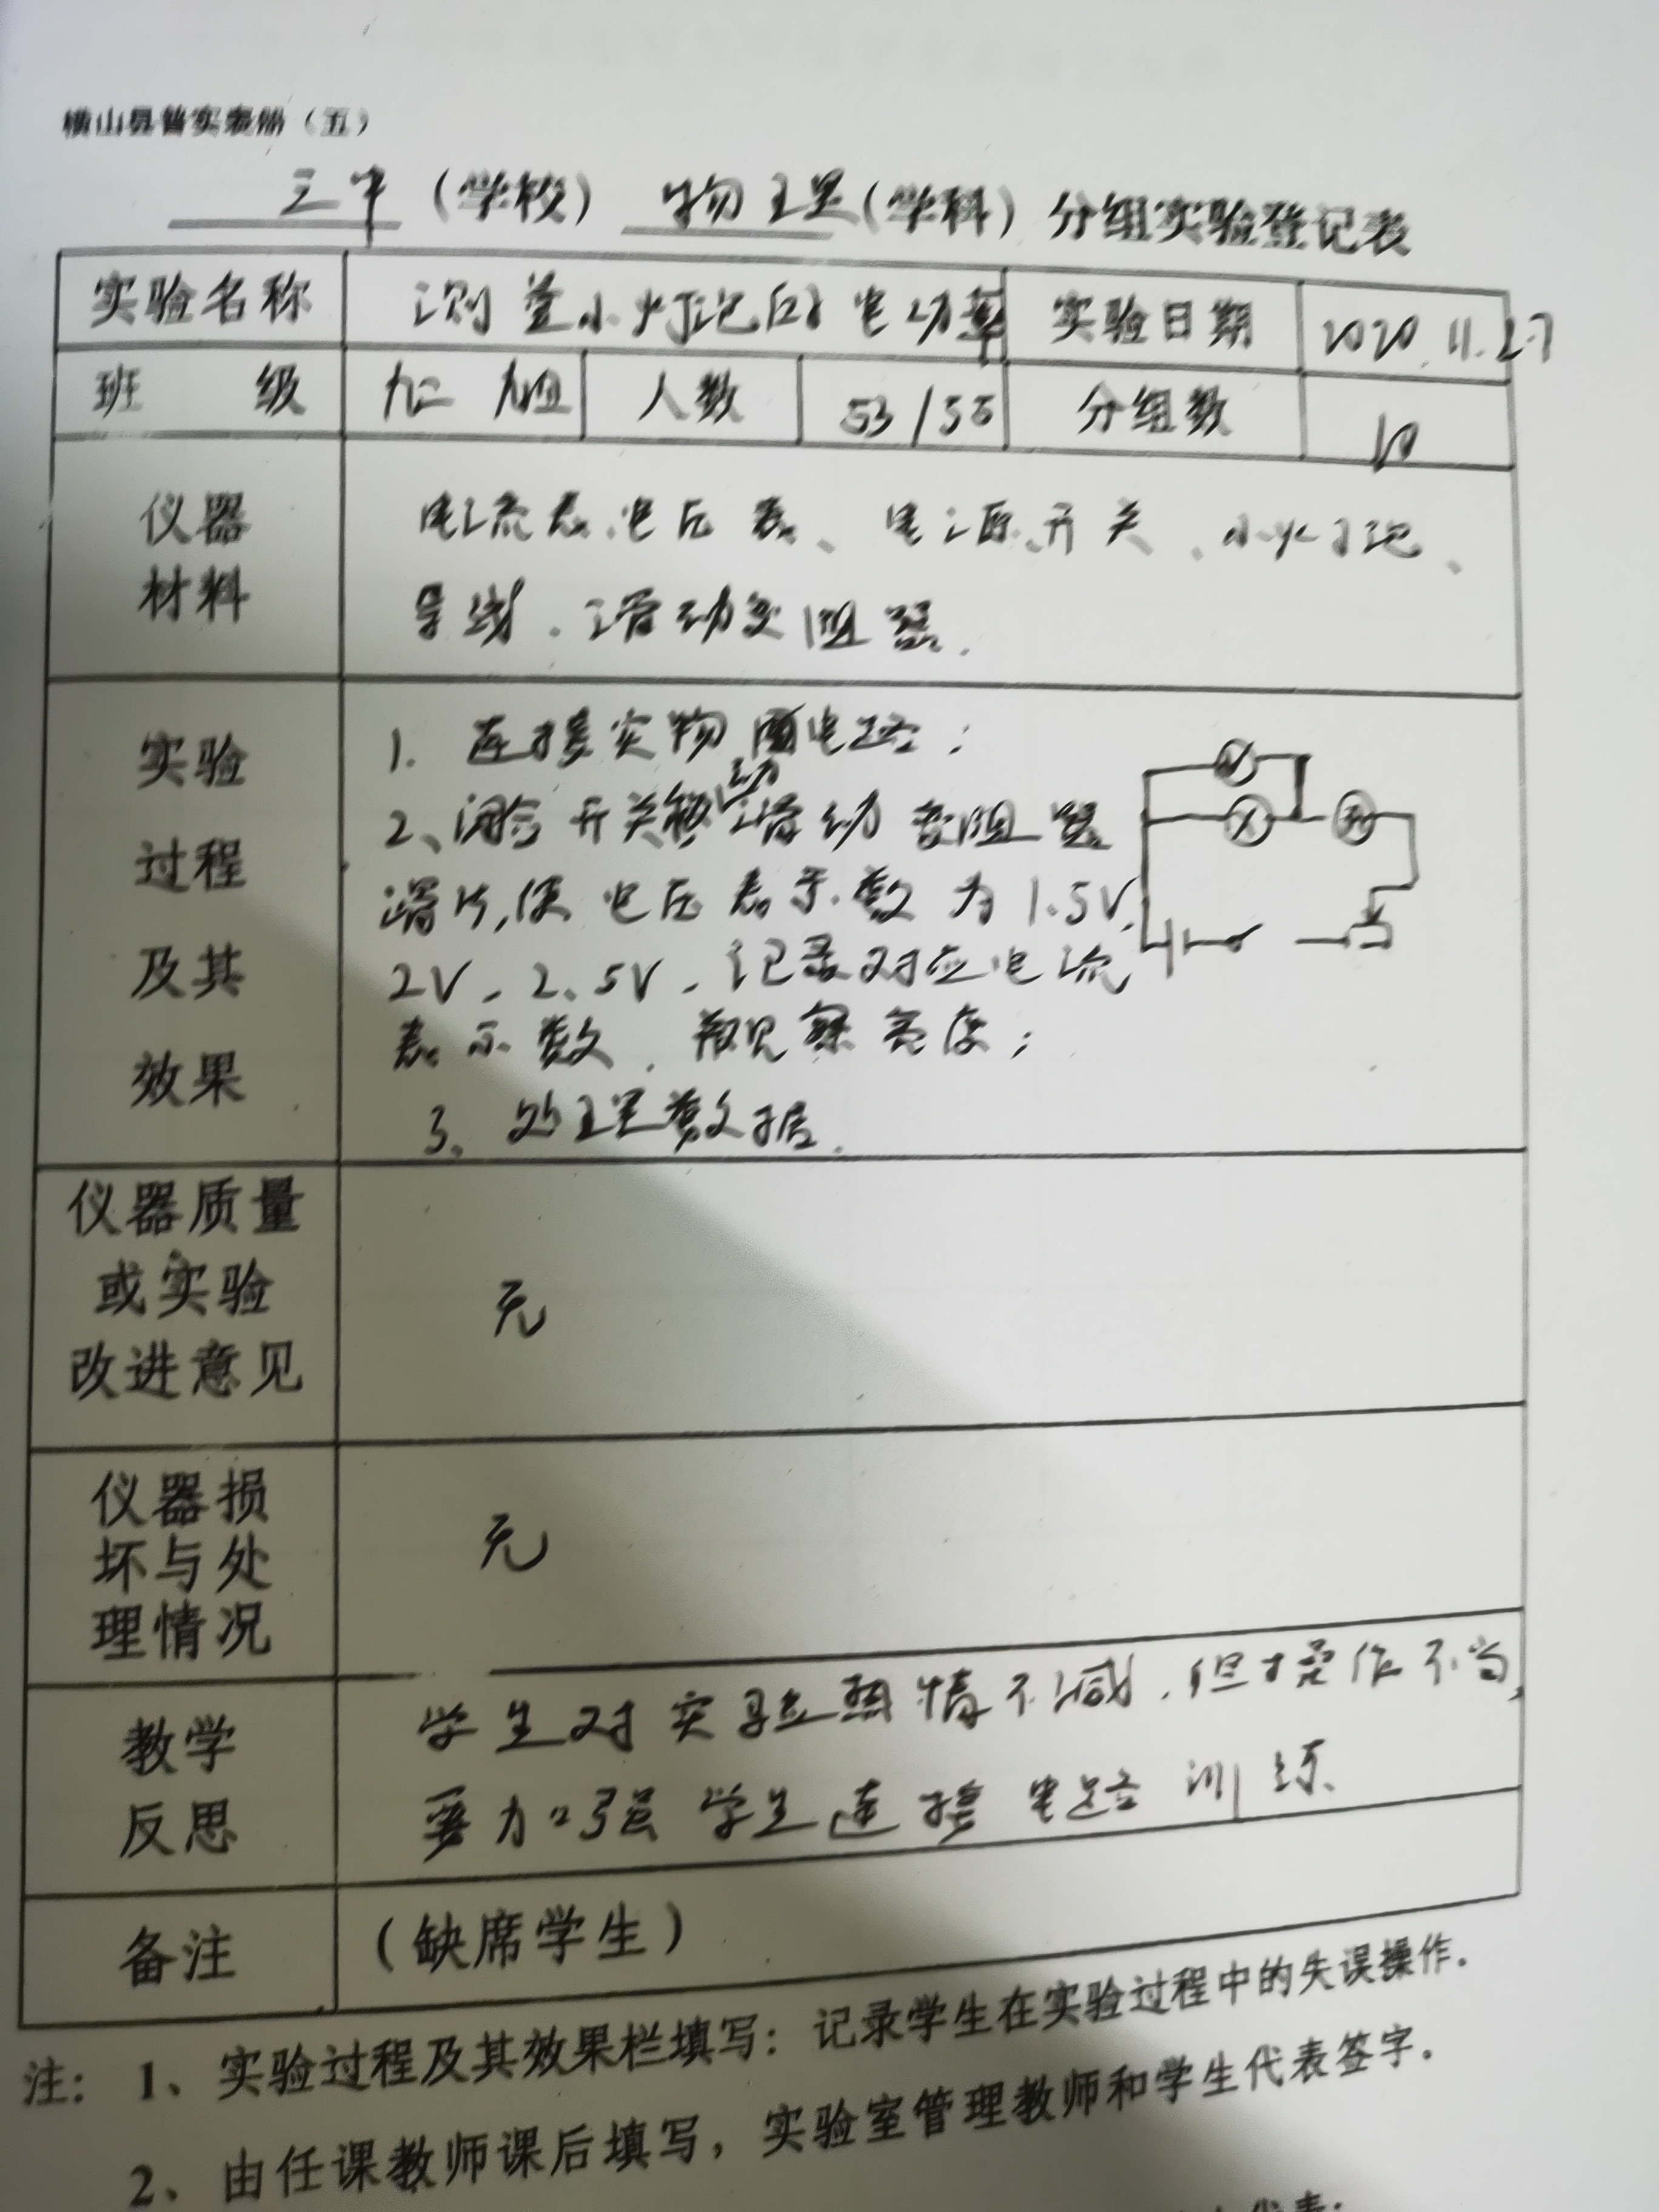 横山县普实表册（五）
三中（学校） 物理（学科）分组实验登记表
实验名称 测量小灯泡的电功率 实验日期 2020.11.27
班 级 九二 九四 人数 53/55 分组数 10
仪器 电流表、电压表、电源、开关、小灯泡、
材料 导线、滑动变阻器.
实验 1. 连接实物图电路；
2、闭合开关移动滑动变阻器
过程
滑片,使电压表示数为1.5V,
及其 2V、2.5V、记录对应电流
表示数，观察亮度；
效果
3、处理数据.
仪器质量
或实验 无
改进意见
仪器损
坏与处 无
理情况
教学 学生对实验热情不减，但操作不当,
反思 要加强学生连接电路训练
备注 （缺席学生）
注： 1、实验过程及其效果栏填写：记录学生在实验过程中的失误操作.
2、由任课教师课后填写，实验室管理教师和学生代表签字.